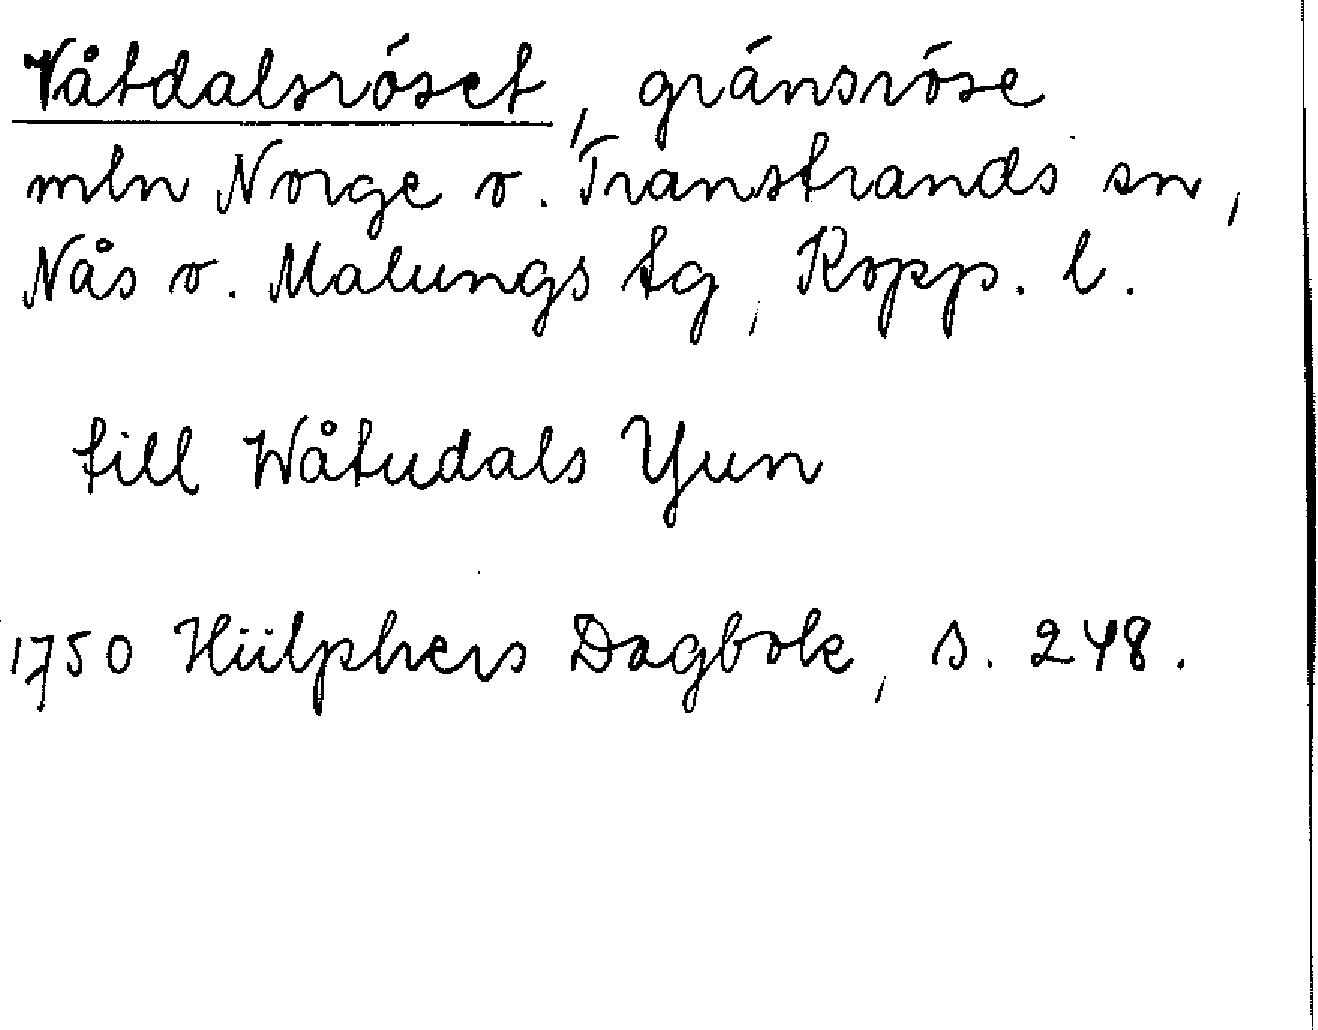 Våtdalsröset, gränsröse
mln Norge o. Transtrands sn,
Nås o. Malungs tg, Kopp. l.
till Wåtudals Yun
1750 Hülphers Dagbok, s. 248.